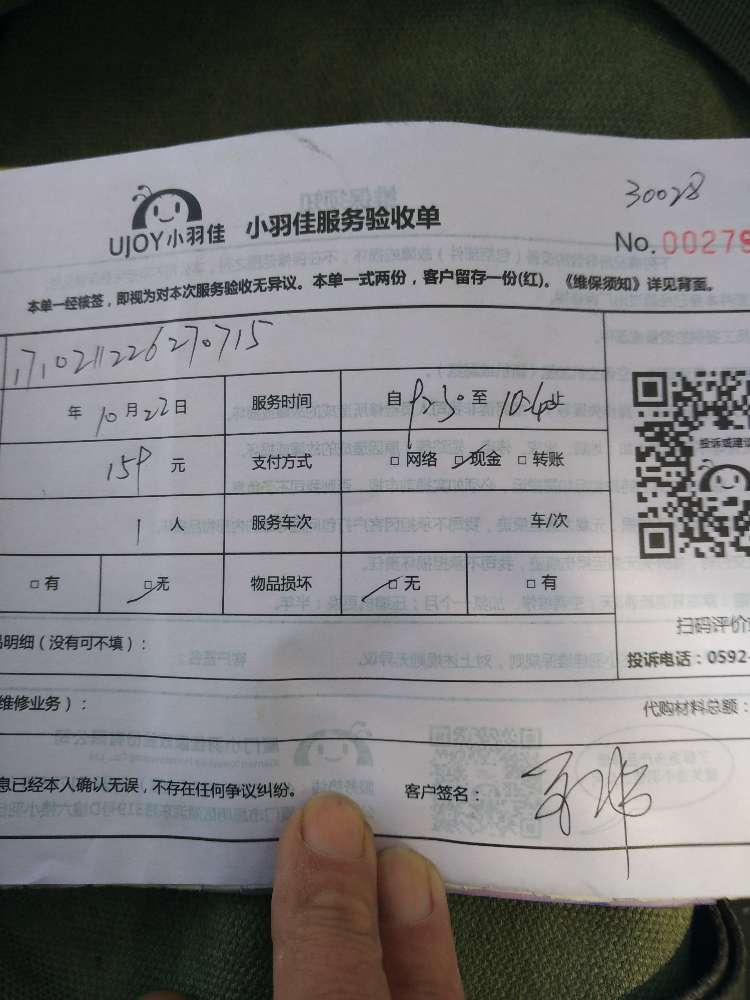 30028
UJOY小羽佳 小羽佳服务验收单
No.00278
本单一经核签，即视为对本次服务验收无异议。本单一式两份，客户留存一份(红)。《维保须知》详见背面。
171021122627 0715
年 10月22日 服务时间 自 9230 至 1024 止
159 元 支付方式 □ 网络 □ 现金 □ 转账
投诉或建议
1 人 服务车次 车/次
□ 有 □ 无 物品损坏 □ 无 □ 有
明细（没有可不填）：
扫码评价
投诉电话：0592-
维修业务）：
代购材料总额：
息已经本人确认无误，不存在任何争议纠纷。 客户签名：